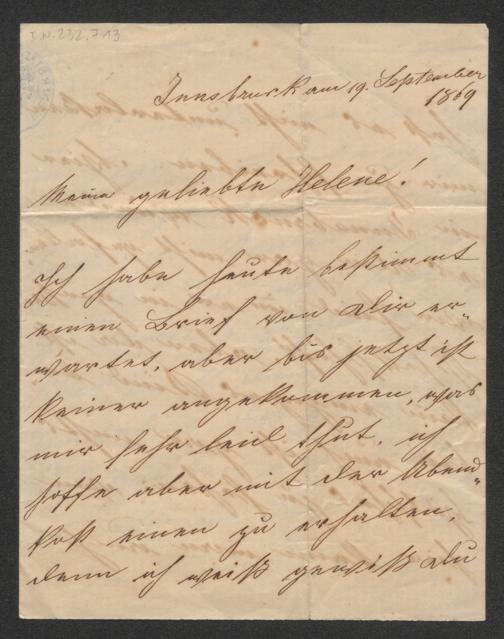 I.N. 232.713
Innsbruck am 19. September
1869
Meine geliebte Helene!
Ich habe heute bestimmt
einen Brief von Dir er-
wartet, aber bis jetzt ist
keiner angekommen, was
mir sehr leid thut. ich
hoffe aber mit der Abend-
post einen zu erhalten,
denn ich weiß gewiß Du